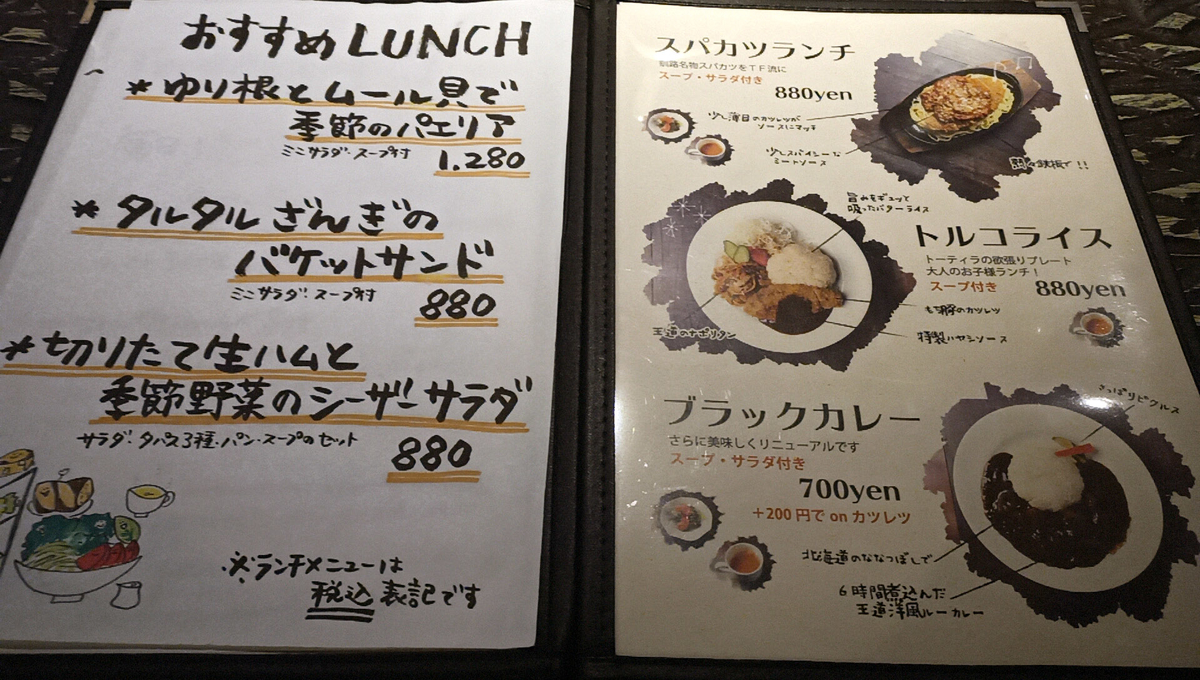 おすすめ LUNCH
* ゆり根とムール貝で
季節のパエリア
ミニサラダ・スープ付 1.280
* タルタルざんぎの
バケットサンド
ミニサラダ・スープ付 880
* 切りたて生ハムと
季節野菜のシーザーサラダ
サラダ・タパス3種・パン・スープのセット
880
※ランチメニューは
税込表記です
スパカツランチ
釧路名物スパカツをTF流に
スープ・サラダ付き
880yen
少し薄目のカツレツが
ソースにマッチ
少しスパイシーな
ミートソース
熱々鉄板で!!
旨みをギュッと
吸ったバターライス
トルコライス
トーティラの欲張りプレート
大人のお子様ランチ!
スープ付き 880yen
もち豚のカツレツ
王道のナポリタン
特製ハヤシソース
ブラックカレー
さらに美味しくリニューアルです
スープ・サラダ付き
700yen
+200円で on カツレツ
さっぱりピクルス
北海道のななつぼしで
6時間煮込んだ
王道洋風ルーカレー